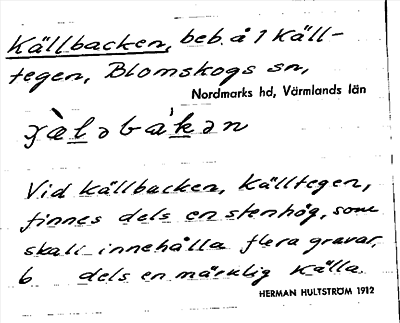 Källbacken, beb. å 1 Käll-
tegen, Blomskogs sn,
Nordmarks hd, Värmlands län
Vid Källbacken, Källtegen,
finnes dels en stenhög, som
skall innehålla flera gravar,
b dels en märklig Källa.
HERMAN HULTSTRÖM 1912